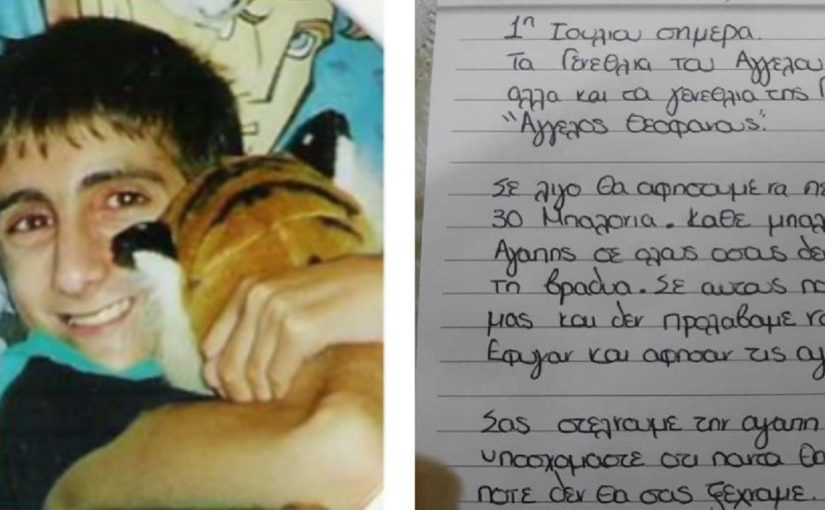 1η Ιουλίου σημερα.
Τα Γενεθλια του Αγγελου
αλλα και τα γενεθλια της
"Αγγελος Θεοφανους".
Σε λιγο θα αφησουμε να
30 Μπαλονια. Καθε
Αγαπης σε ολους οσους δεν
τη βραδια. Σε αυτους
μας και δεν προλαβαμε να
Εφυγαν και αφησαν τις
Σας στελνουμε την αγαπη
υποσχομαστε οτι παντα θα
ποτε δεν θα σας ξεχναμε.